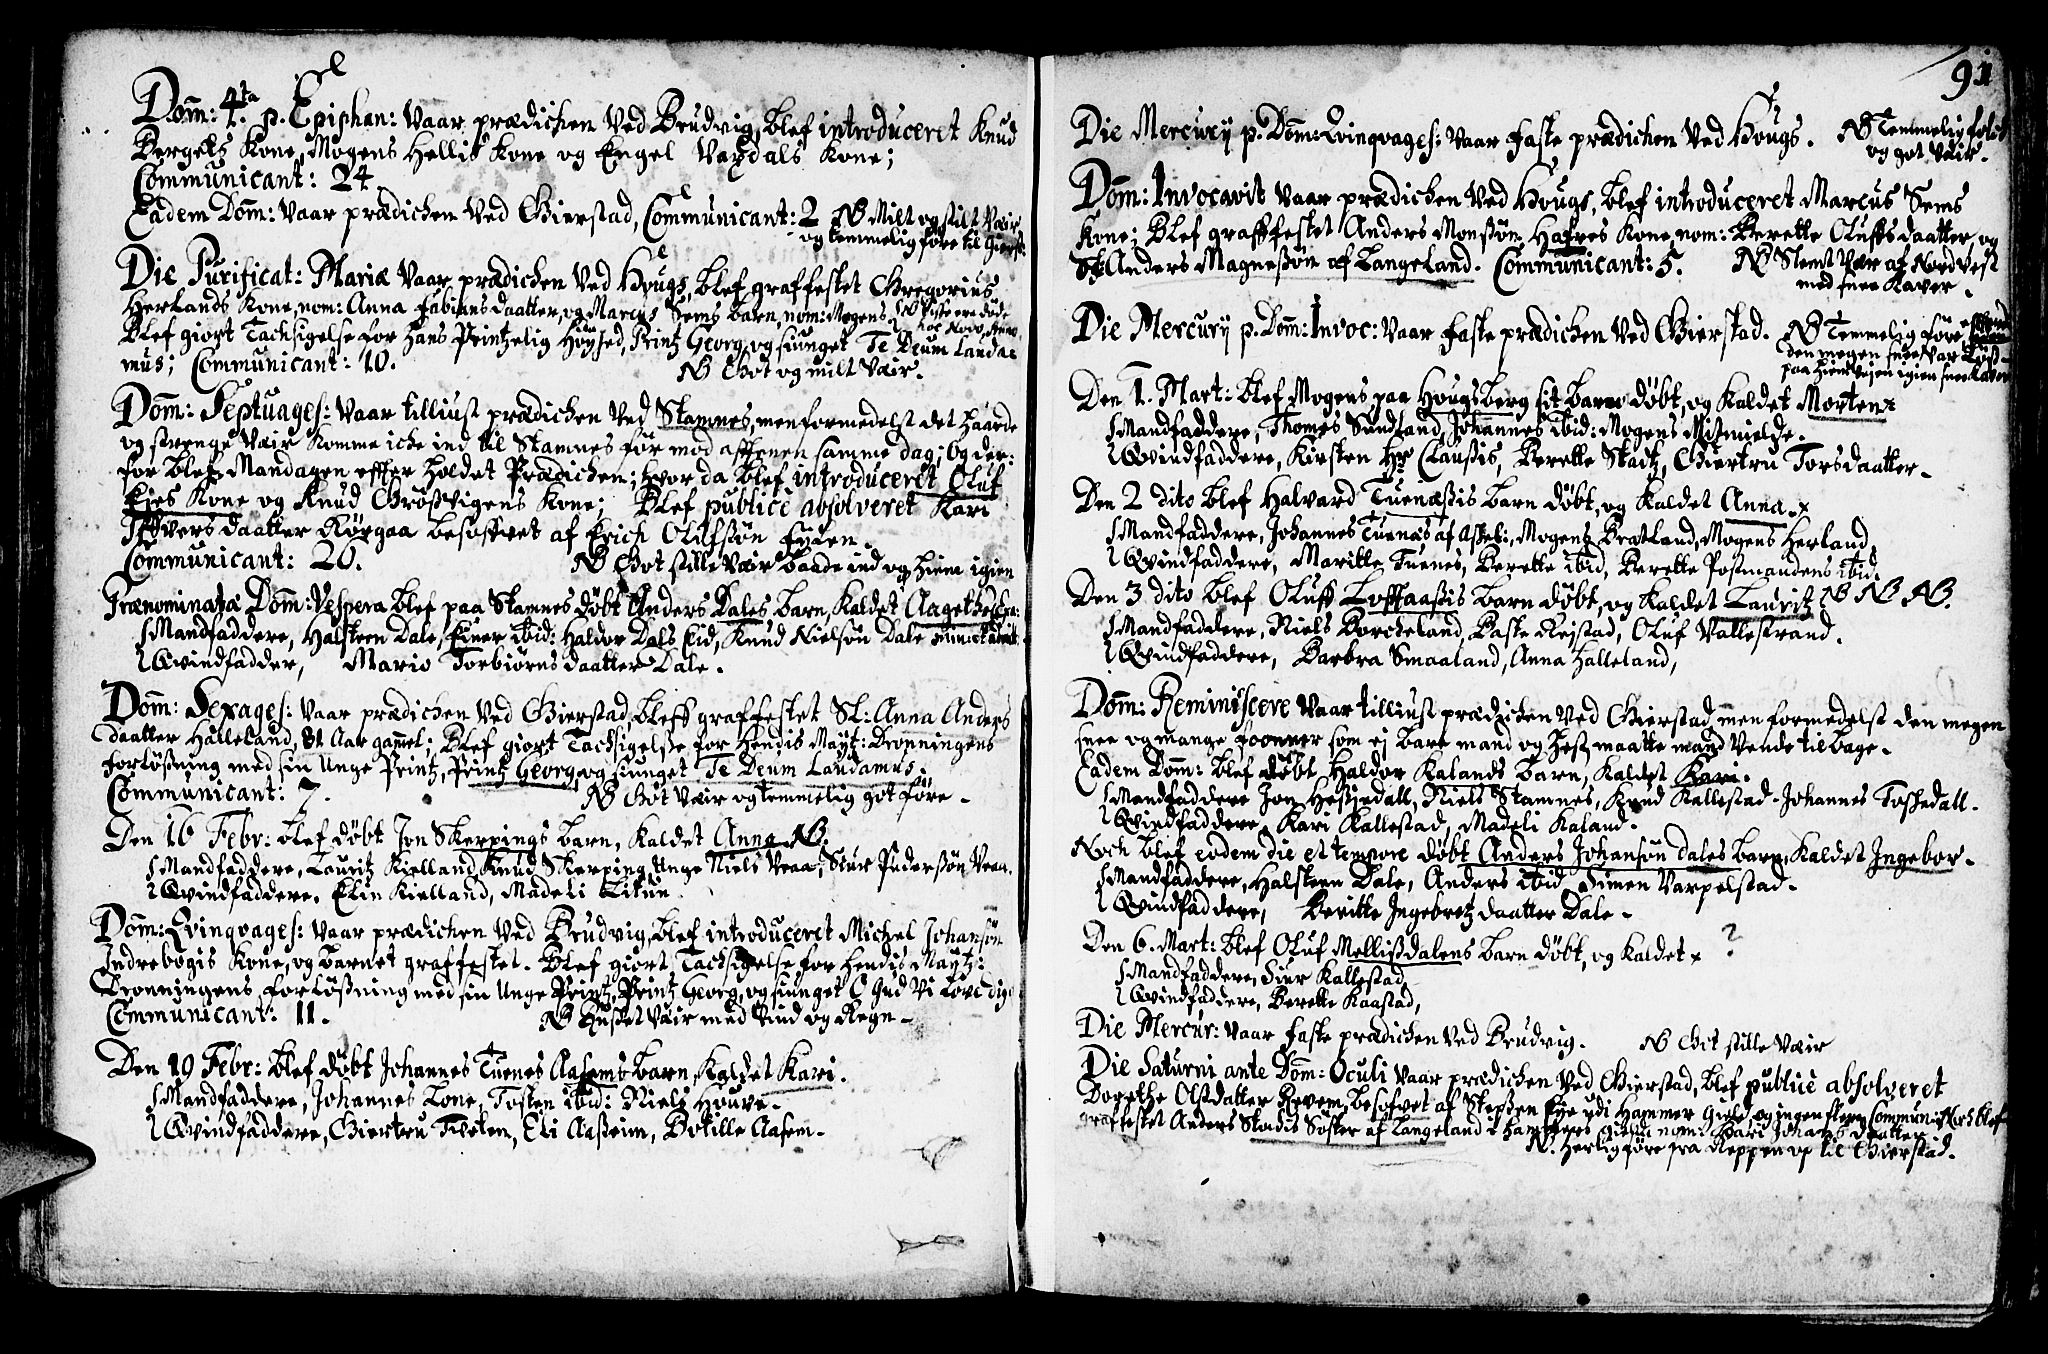 Dom: 4ta p. Epiphan: Vaar prædichen Ved Brudvig, blef introduceret Knud
Bergels Kone, Mogens Hellis Kone og Engel Vaxdals Kone;
Communicant: 24.
Eadem Dom: Vaar prædichen Ved Gierstad, Communicant: 2 NB Milt og stilt Vær
og temmelig føre til Gierst:
Die Purificat: Mariæ Vaar prædichen Ved Hougs, blef graffestet Gregorius
Herlands Kone, nom: Anna Fabians daatter, og Marcus Sems barn, nom: Mogens
Blef giort Tachsigelse for Hans Printzelig Høyhed, Printz Georg, og siunget Te Deum Lauda=
mus; Communicant: 10. NB Got og milt Vær.
Dom: Septuages: Vaar tilliust prædichen Ved Stamnes, men formedelst det haarde
og strenge Vær komme iche ind til Stamnes før mod afftenen samme dag; Og der:
for blef Mandagen effter holdet Prædichen; hvor da blef introduceret Oluf
Eies Kone og Knud Grøsvigens Kone; Blef publicè absolveret Kari
Iffvers daatter Rørgaa besoffvet af Erich Olufsøn
Communicant: 20. NB Got stille Vær baade ind og hiem igien
Prænominata Dom: Vespera blef paa Stamnes døbt Anders Dales barn, kaldet Aagethe
Mandfaddere, Halsteen Dale, Einer ibid: Haldor Dals Eid, Knud Nielsøn Dale
Qvindfadder, Mario Torbiørns daatter Dale.
Dom: Sexages: Vaar prædichen Ved Gierstad, bleff graffestet Sl: Anna Anders
daatter Halleland, 81 Aar gammel; Blef giort Tachsigelse for Hendis Mayt: Dronningens
forløssning med sin Unge Printz, Printz Georg, og siunget Te Deum Laudamus.
Communicant: 7. NB Got Vær og temmelig got føre.
Den 16 Febr: blef døbt Jon Skerpings barn, kaldet Anna NB.
Mandfaddere, Lauritz Kielland, Knud Skerping, Unge Niels Vraa, Siur Pedersøn Vraa.
Qvindfaddere, Elin Kielland, Madeli Litun.
Dom: Qvinqvages: Vaar prædichen Ved Brudvig, blef introduceret Michel Johansøn
Indrebøgis Kone, og barnet graffestet. Blef giort Tachsigelse for Hendis Mayt:
Dronningens forløssning med sin Unge Printz, Printz Georg, og siunget O Gud Vi Love dig
Communicant: 11. NB Husset Vær med Vind og Regn.
Den 19 Febr: blef døbt Johannes Tuenes Aasems barn, kaldet Kari.
Mandfaddere, Johannes Lone, Tosten ibid: Niels Houve.
Qvindfaddere, Giertru Tveten, Eli Aasseim, Botille Aasem.
91
Die Mercurij p. Dom: Qvinqvages: Vaar faste prædichen Ved Hougs. NB Temmelig
og got Vær.
Dom: Invocavit Vaar prædichen Ved Hougs, blef introduceret Marcus Sems
Kone; Blef graffestet Anders Monssøn Hafres Kone, nom: Berette Oluffs daatter, og
Sl: Anders Magnessøn af Langeland. Communicant: 5. NB Slemt Vær af Nordvest
med snee Kaver.
Die Mercurij p. Dom: Invoc: Vaar faste prædichen Ved Gierstad. NB Temmelig føre
den megen snee Var
paa hiem Veyen igien snee Kaver
Den 1. Mart: blef Mogens paa Hougsberg sit barn døbt, og kaldet Morten
Mandfaddere, Thomes Sundland, Johannes ibid: Mogens Mismielde.
Qvindfaddere, Kirsten Hr Claussis, Berette Stadtz, Giertru Torsdaatter.
Den 2 dito blef Halvard Tuenæssis barn døbt, og kaldet Anna.
Mandfaddere, Johannes Tuenæs af Mogens Bratland, Mogens Herland
Qvindfaddere, Maritte Tuenes, Berette ibid, Berette Postmandens ibid:
Den 3 dito blef Oluff Loffaassis barn døbt, og kaldet Lauritz NB NB NB.
Mandfaddere, Niels Borcheland, Baste Reistad, Oluf Vallestrand.
Qvindfaddere, Barbra Smaaland, Anna Halleland,
Dom: Reminiscere Vaar tilliust prædichen Ved Gierstad, men formedelst den megen
snee og mange foonner som ej bare mand og Hest, maatte mand Vende tilbage.
Eadem Dom: blef døbt Haldor Kalands barn, kaldet Kari.
Mandfaddere Jon Hesjedall, Niels Stamnes, Knud Kallestad, Johannes Toschedall.
Qvindfaddere, Kari Kallestad, Madeli Kaland.
Noch blef eodem die et tempore døbt Anders Johansøn Dales barn, kaldet Ingebor.
Mandfaddere, Halsteen Dale, Anders ibid, Simen Varpelstad.
Qvindfaddere, Beritte Ingebretz daatter Dale.
Den 6. Mart: blef Oluf Mellissdalens barn døbt, og kaldet ?
Mandfaddere, Siur Kallestad,
Qvindfaddere, Berette Kaastad,
Die Mercur: Vaar faste prædichen Ved Brudvig. NB Got stille Vær
Die Saturni ante Dom: Oculi Vaar prædichen Ved Gierstad, blef publicè absolveret
Dorethe Olsdatter Reven, besofvet af Steffen Eye ydi Hammer Gield, og ingen flere Communi: Noch blef
graffestet Anders Stadis Søster af Langeland i Hammers Gield nom: Kari Johans daatter
N. Herlig føre fra Reppen op til Gierstad.